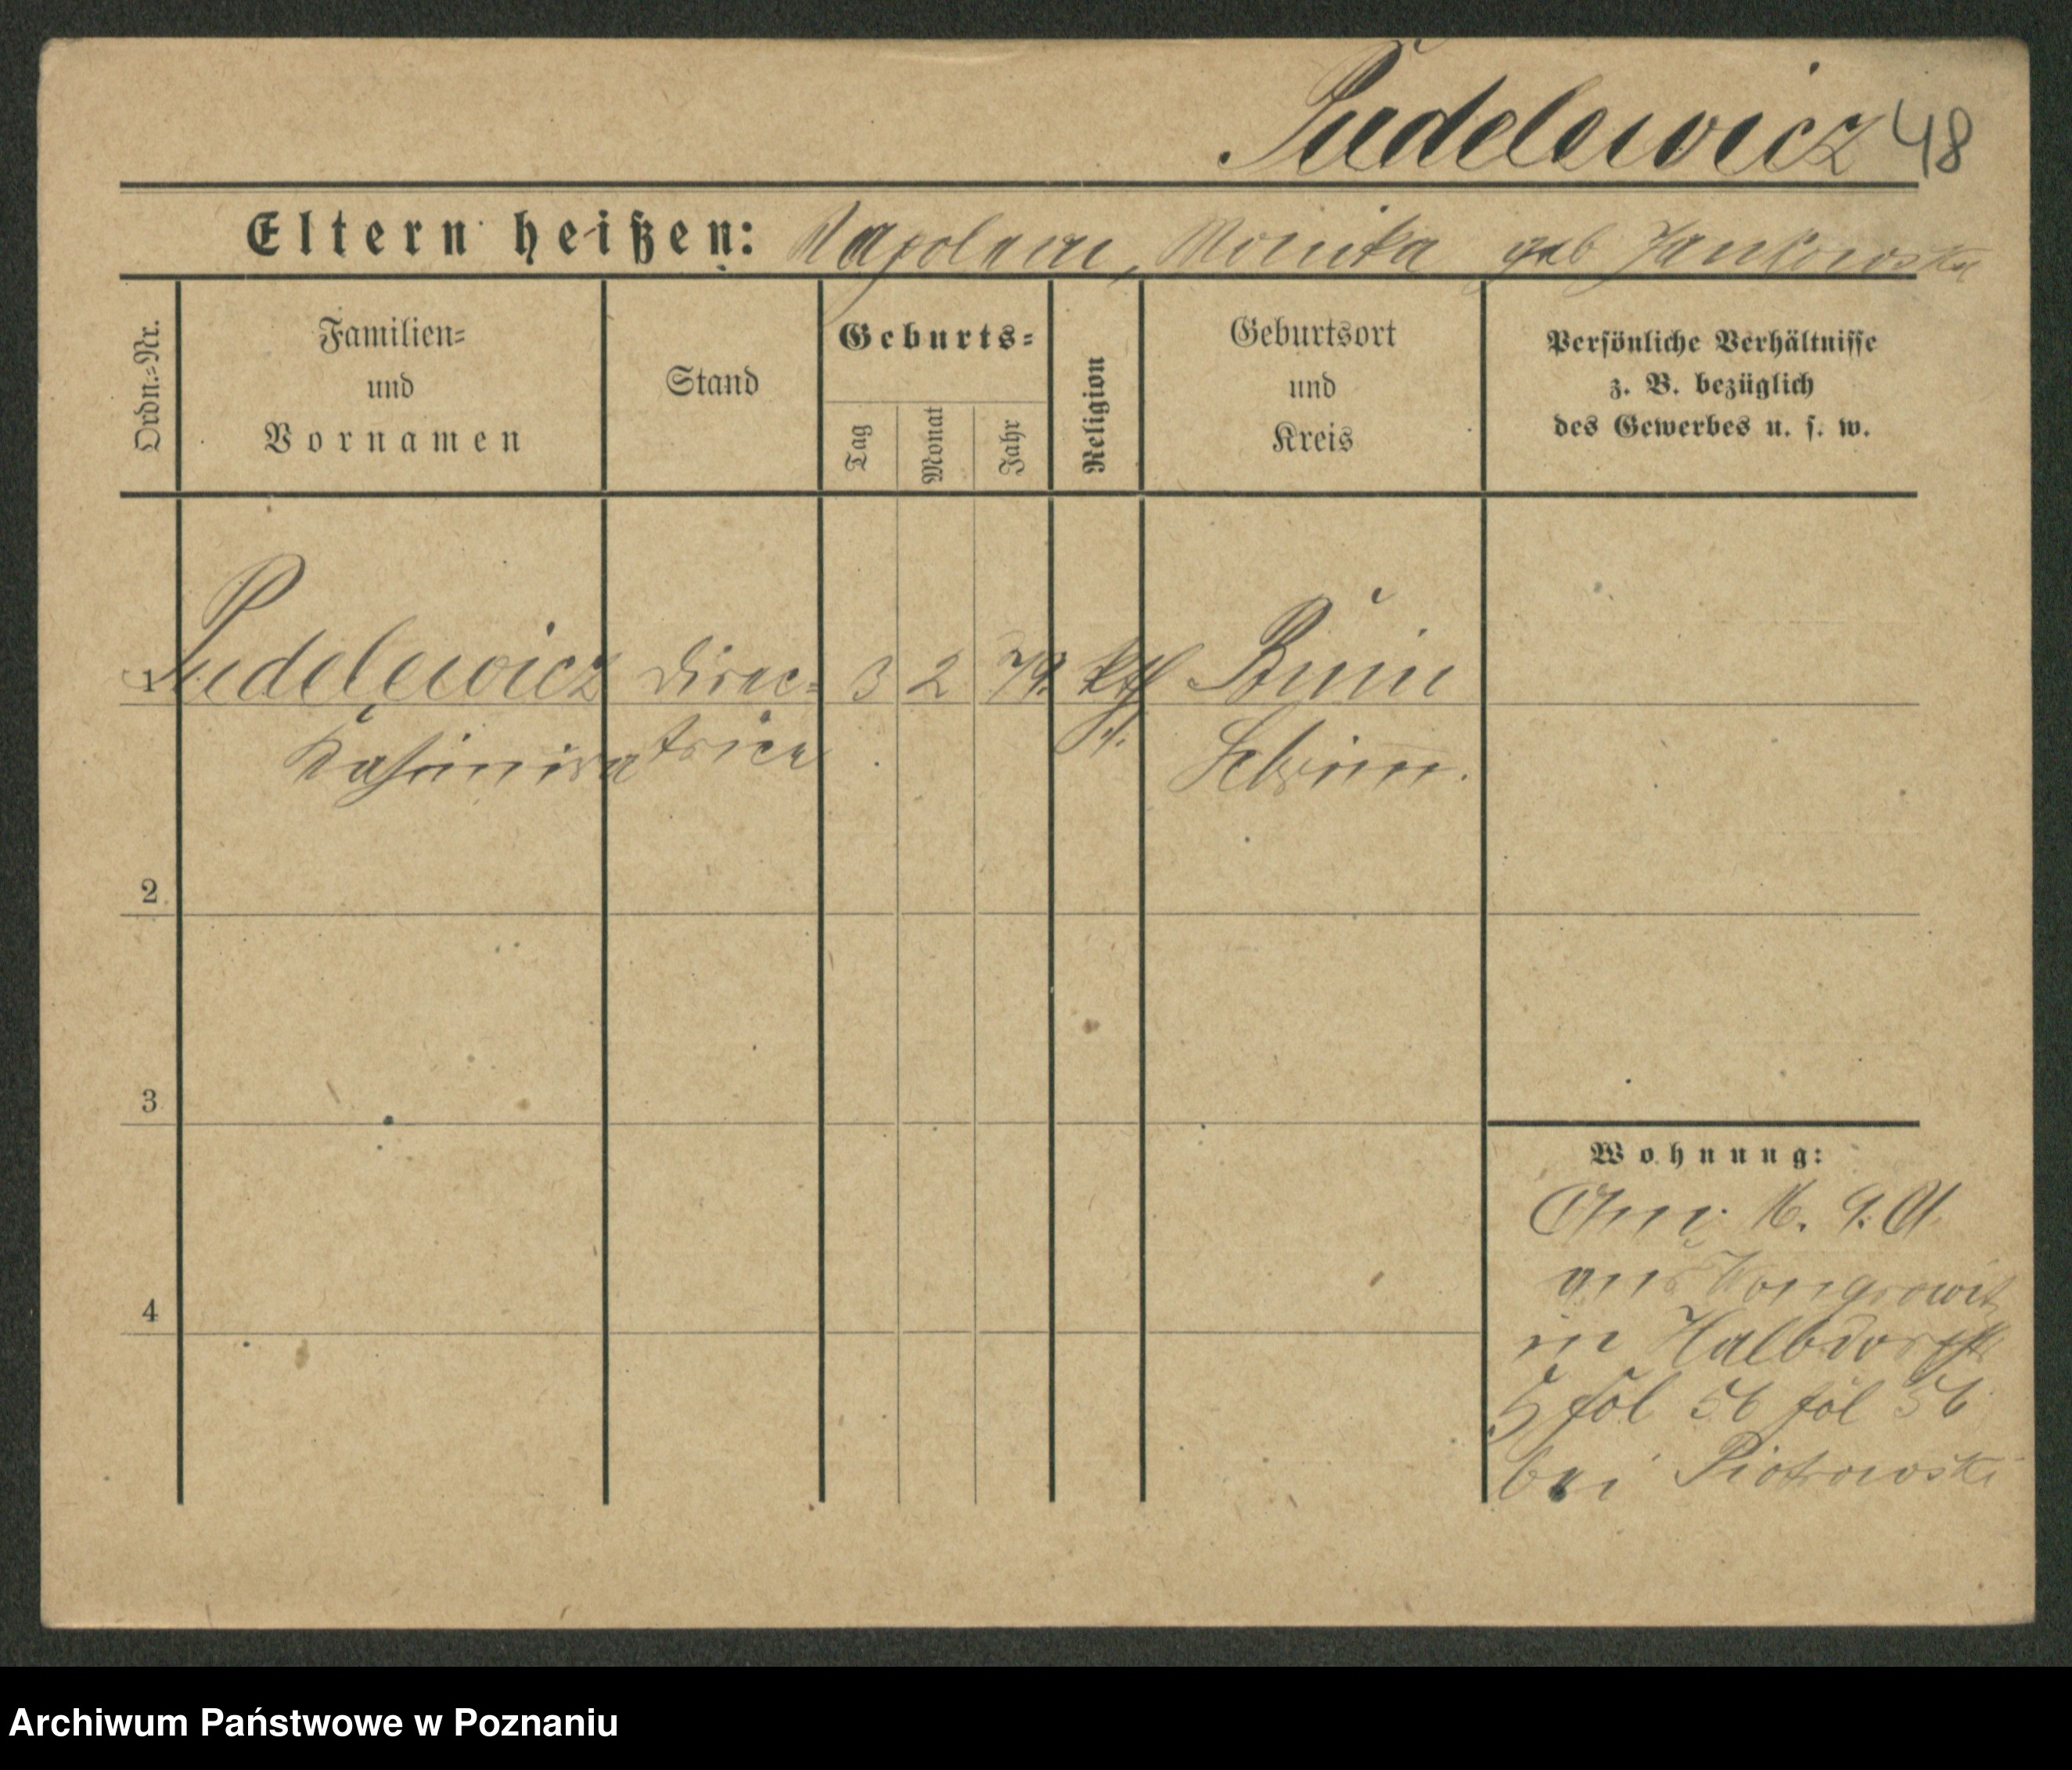 Pudelewicz 48
Eltern heißen: Napoleon, Monika geb Jankowska
Ordn.-Nr.
Familien-
und
Vornamen
Stand
Geburts-
Tag
Monat
Jahr
Religion
Geburtsort
und
Kreis
Persönliche Verhältnisse
z. B. bezüglich
des Gewerbes u. s. w.
1 Pudelewicz Direc- 3 2 79. kth Bnin
Kasimira trice Schrimm.
2
3
4
Wohnung:
16. 9.
aus Wongrowitz
in Halbdorfstr
5 fol 56 fol 56
bei Piotrowski
Archiwum Państwowe w Poznaniu